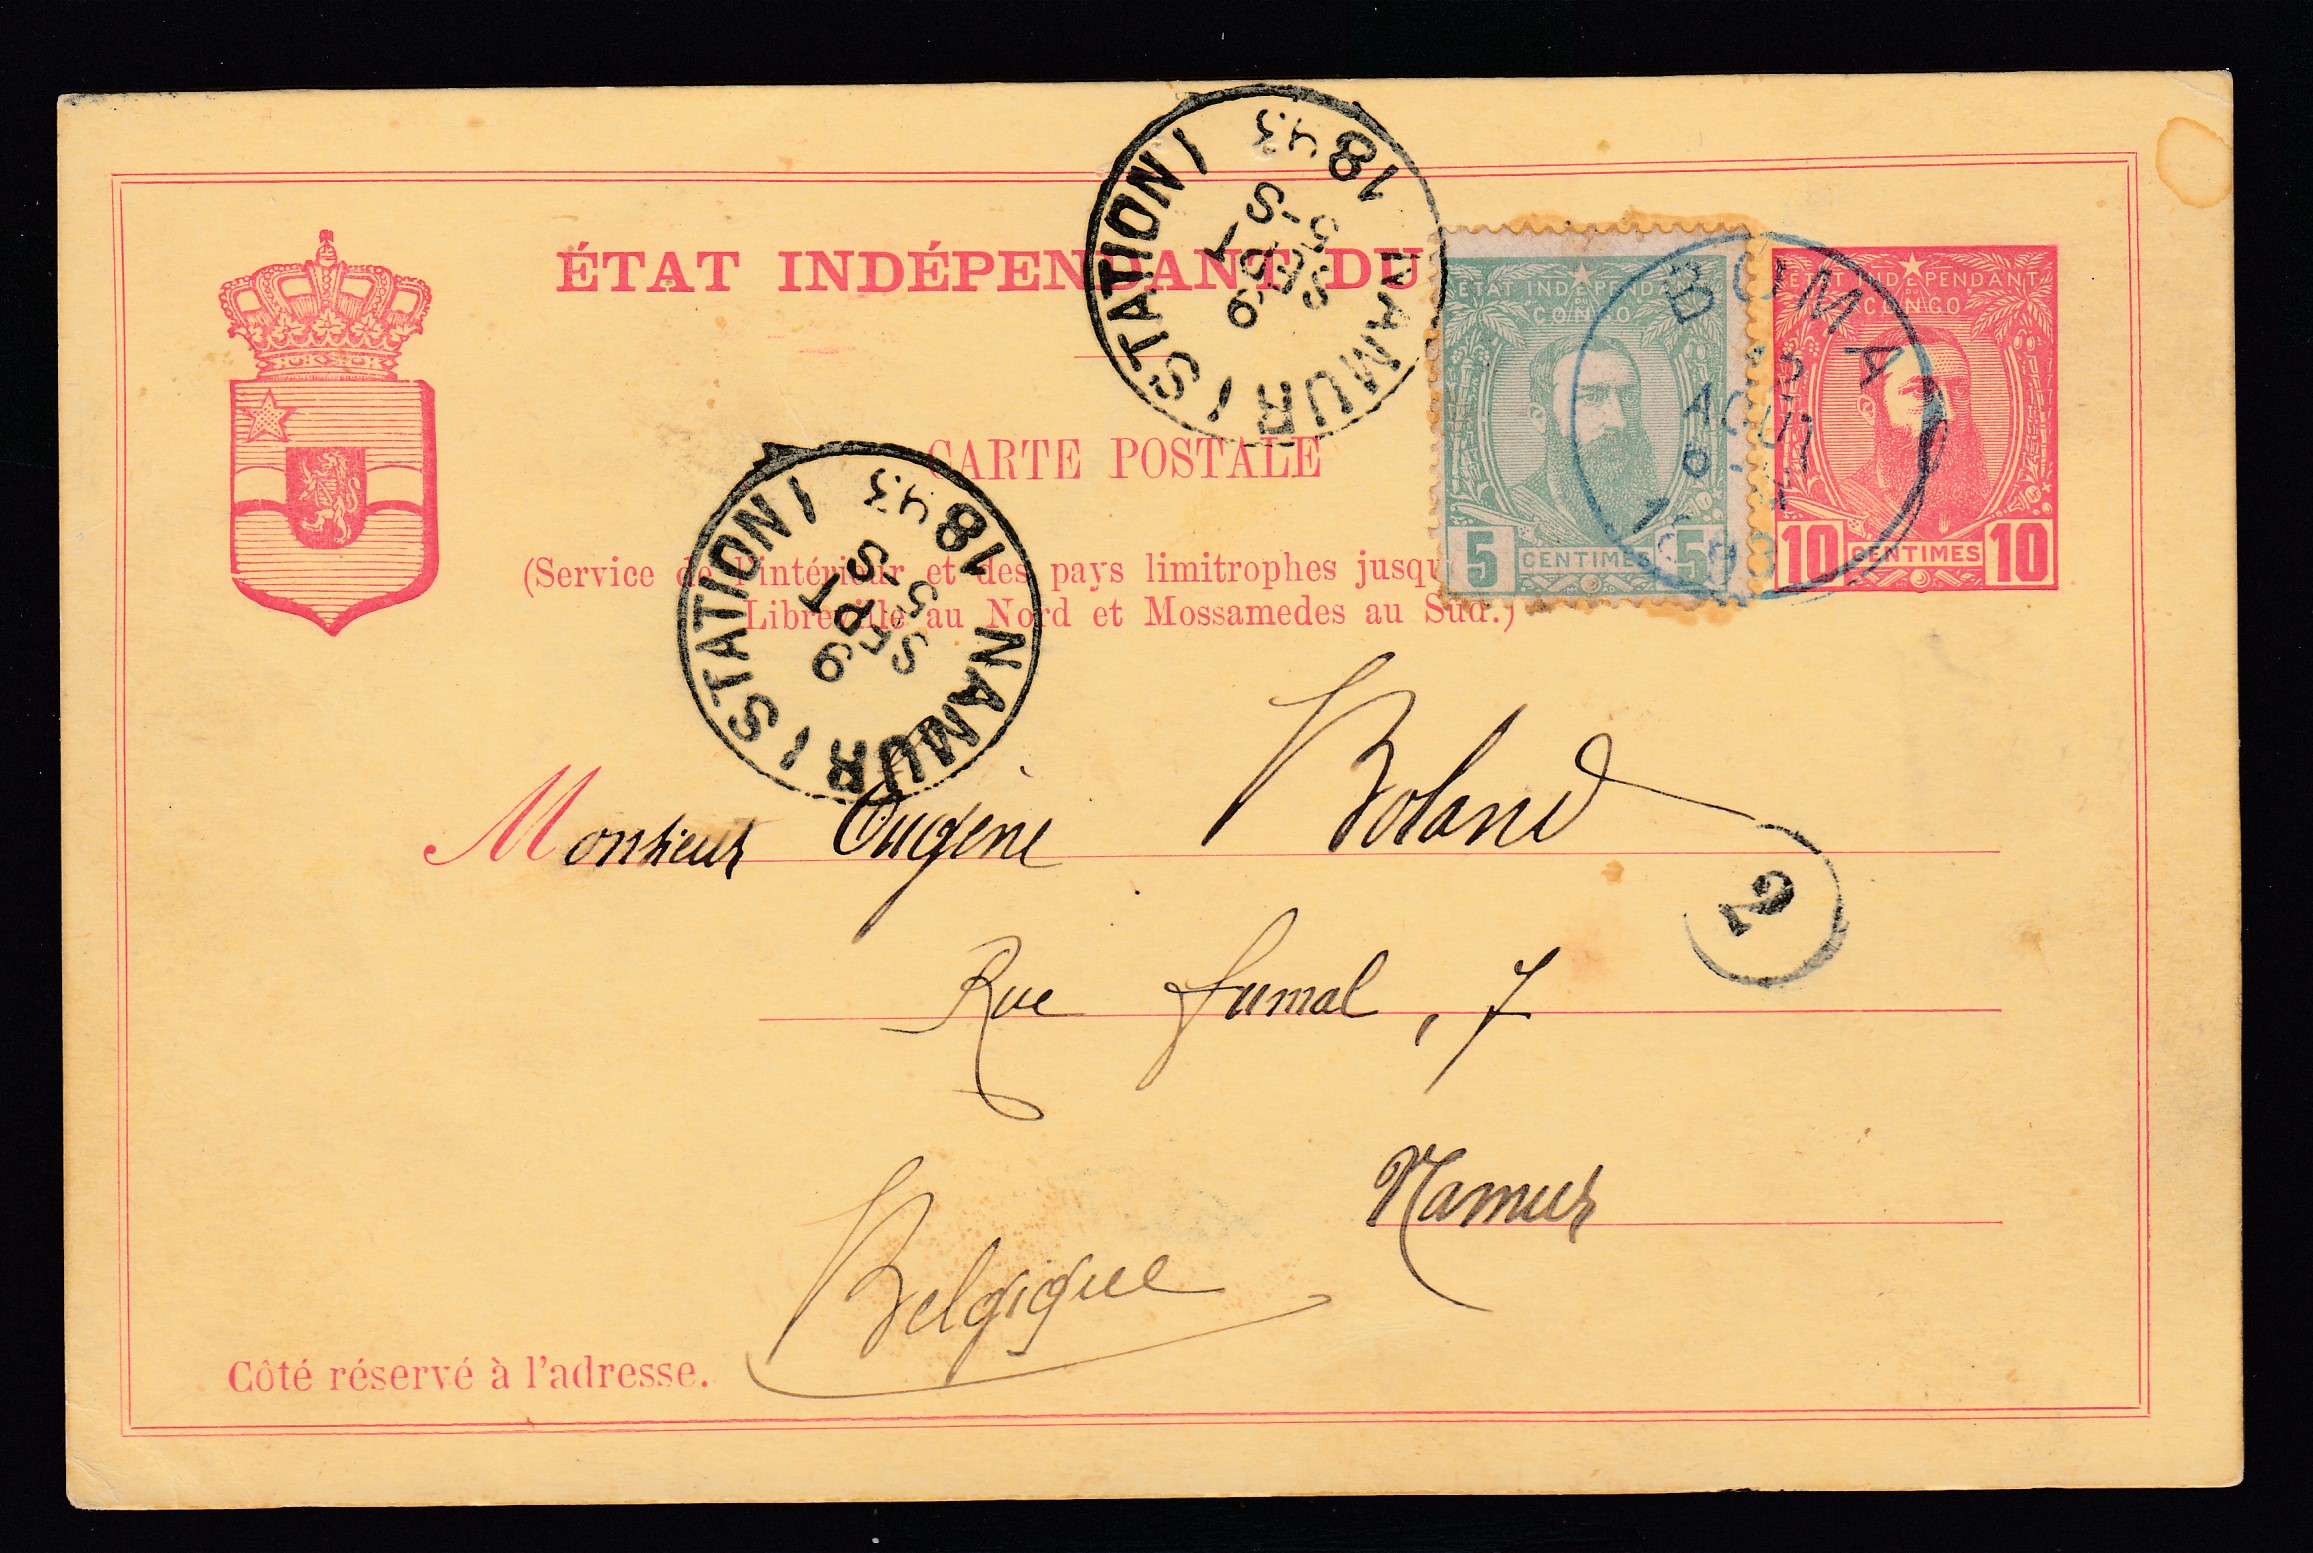 ÉTAT INDÉPENDANT DU
CARTE POSTALE
(Service de l'intérieur et des pays limitrophes jusqu
Libreville au Nord et Mossamedes au Sud.)
NAMUR (STATION)
18 93
NAMUR (STATION)
18 93
ÉTAT INDÉPENDANT
DU
CONGO
5 CENTIMES 5
ÉTAT INDÉPENDANT
DU
CONGO
10 CENTIMES 10
BOMA
AOUT
1893
Monsieur Eugène Boland
2
Rue Fumal, 7
Namur
Belgique
Côté réservé à l'adresse.